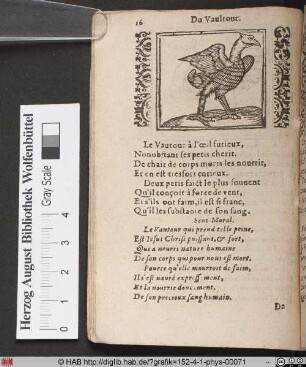 16
Du Vaultour.
Le Vautour à l'œil furieux,
Nonobstant ses petis cherit.
De chair de corps murtis les nourrit,
Et en est tresfort curieux.
Deux petis faict le plus souuent
Qu'il conçoit à force de vent,
Et s'ils ont faim, il est si franc,
Qu'il les substante de son sang.
Sens Moral.
Le Vautour qui prend telle peine,
Est Iesus Christ puissant, & fort,
Qui a nourri nature humaine
De son corps qui pour nous est mort.
Pource qu'elle mourroit de faim,
Il s'est nauré expressément,
Et la nourrie doucement,
De son precieux sang humain.
Du
Herzog August Bibliothek Wolfenbüttel
Gray Scale
0
1
2
3
4
© HAB http://diglib.hab.de/?grafik=152-4-1-phys-00071